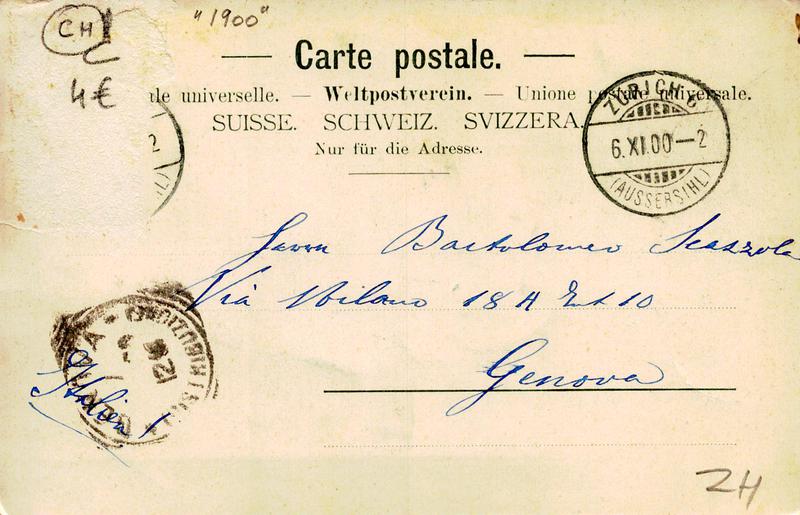 CH "1900"
4€
Carte postale.
le universelle. — Weltpostverein. — Unione postale universale.
SUISSE. SCHWEIZ. SVIZZERA.
Nur für die Adresse.
ZÜRICH
6.XI.00—2
(AUSSERSIHL)
2
Herrn Bartolomeo Scazzola
Via Milano 18 A Int 10
Genova
Italien
12
ZH